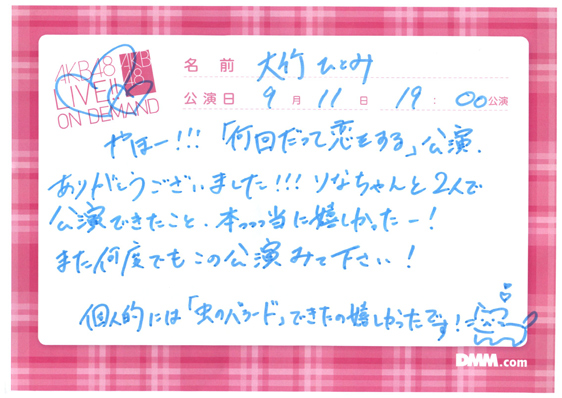 AKB48
LIVE!!
ON DEMAND
AKB
48
名前 大竹ひとみ
公演日 9月11日 19:00公演
やほー!!!「何回だって恋をする」公演、
ありがとうございました!!!りなちゃんと2人で
公演できたこと、本っっっ当に嬉しかったー!
また何度でもこの公演みて下さい!
個人的には「虫のバラード」できたの嬉しかったです!
DMM.com